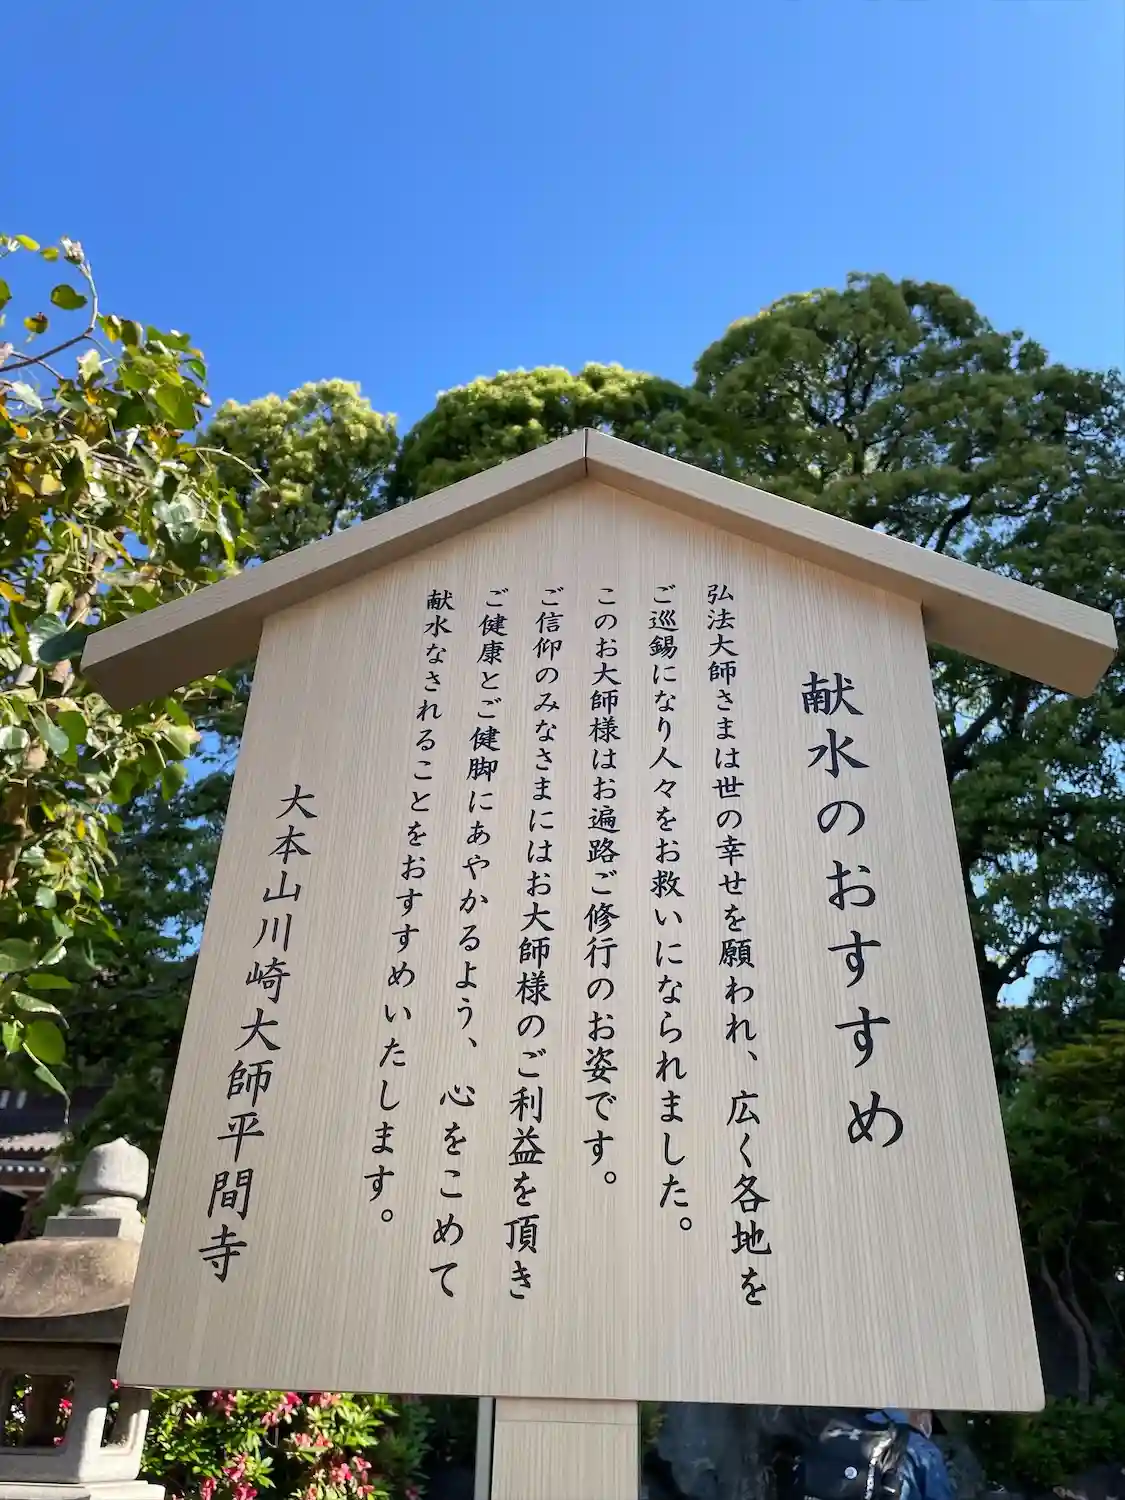 献水のおすすめ
弘法大師さまは世の幸せを願われ、広く各地を
ご巡錫になり人々をお救いになられました。
このお大師様はお遍路ご修行のお姿です。
ご信仰のみなさまにはお大師様のご利益を頂き
ご健康とご健脚にあやかるよう、心をこめて
献水なされることをおすすめいたします。
大本山川崎大師平間寺